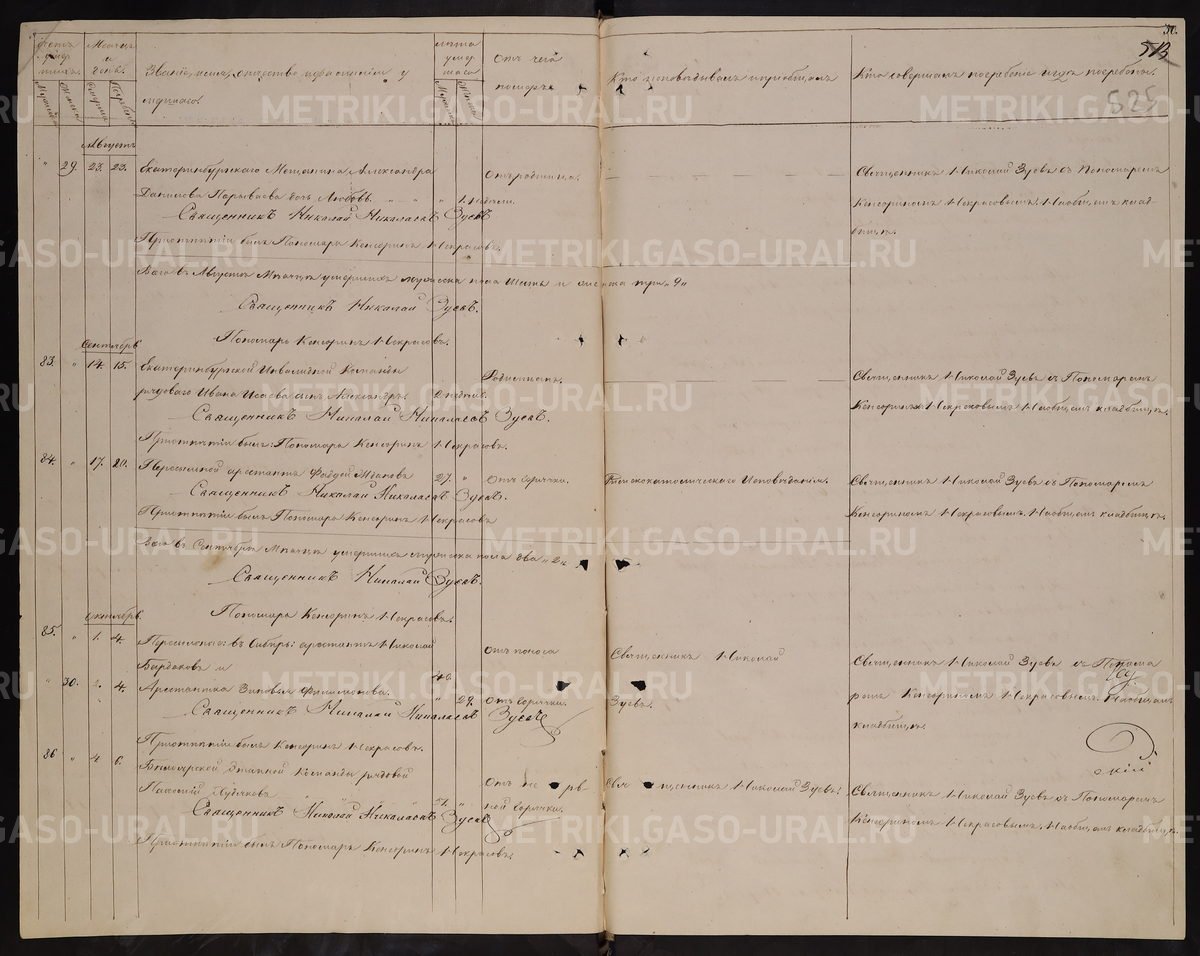 30.
513
525
Счетъ умер
шихъ.
Мужеска
Женска
Месяцъ
и
день.
Смерти
Погребен.
Званіе, имя, отчество и фамилія у
мершаго.
лѣта
умер
шаго
Мужеска
Женска
Отъ чего
померъ
Кто исповѣдывалъ и пріобщалъ
Кто совершалъ погребеніе и гдѣ погребены.
Августъ
" 29. 23. 23. Екатеринбургскаго Мещанина Александра
Данилова дочь Любовь. " 1. недѣли.
Отъ родимца.
Священникъ Николай Зуевъ съ Пономаремъ
Кенсориномъ Некрасовымъ. На общемъ клад-
бищѣ.
Священникъ Николай Николаевъ Зуевъ
Причетникъ былъ Пономарь Кенсоринъ Некрасовъ.
Всего въ Августѣ Мѣсяцѣ умершихъ мужеска пола Шесть и женска три. 9.
Священникъ Николай Зуевъ.
Пономарь Кенсоринъ Некрасовъ.
Сентябрь
83. " 14. 15. Екатеринбургской Инвалидной Команды
рядоваго Ивана сынъ Александръ.
Родимцемъ.
Священникъ Николай Зуевъ съ Пономаремъ
Кенсориномъ Некрасовымъ. На общемъ кладбищѣ.
Священникъ Николай Николаевъ Зуевъ.
Причетникъ былъ: Пономарь Кенсоринъ Некрасовъ.
84. " 17. 20. Пересыльной арестантъ Фаддей 27. "
Отъ горячки.
Римскокатолическаго Исповѣданія.
Священникъ Николай Зуевъ съ Пономаремъ
Кенсориномъ Некрасовымъ. На общемъ кладбищѣ.
Священникъ Николай Николаевъ Зуевъ.
Причетникъ былъ Пономарь Кенсоринъ Некрасовъ
Всего въ Сентябрѣ Мѣсяцѣ умершихъ мужеска пола два. 2.
Священникъ Николай Зуевъ.
Пономарь Кенсоринъ Некрасовъ.
Октябрь
85. " 1. 4. въ Сибирь арестантъ Николай
Бардаковъ и
Отъ поноса
Священникъ Николай
Зуевъ.
Священникъ Николай Зуевъ съ Понома
ремъ Кенсориномъ Некрасовымъ. На общемъ
кладбищѣ.
" 30. 2. 4. Арестантка Зиновья Филимонова. " 29. Отъ горячки.
Священникъ Николай Николаевъ Зуевъ
Причетникъ былъ Кенсоринъ Некрасовъ.
скій
86 " 4 6. Этапной Команды рядовой
Отъ нерв
ной горячки.
Священникъ Николай Зуевъ.
Священникъ Николай Зуевъ съ Пономаремъ
Кенсориномъ Некрасовымъ. На общемъ кладбищѣ.
Священникъ Николай Николаевъ Зуевъ
Причетникъ былъ Пономарь Кенсоринъ Некрасовъ.
METRIKI.GASO-URAL.RU